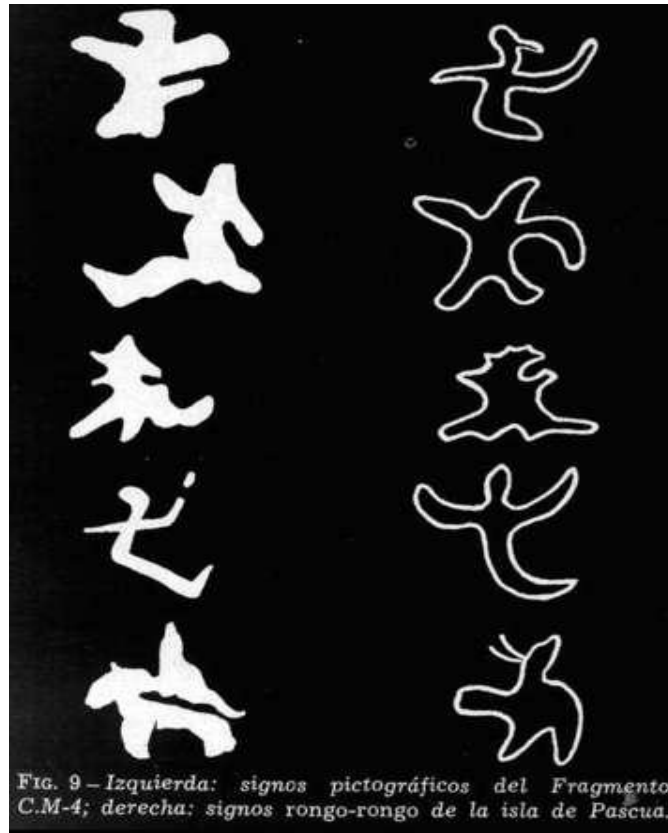 FIG. 9 – Izquierda: signos pictográficos del Fragmento
C.M-4; derecha: signos rongo-rongo de la isla de Pascua